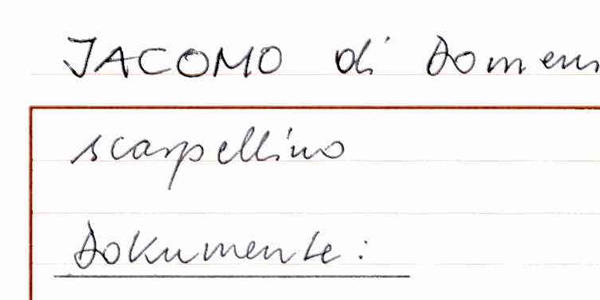 JACOMO di
scarpellino
Dokumente: